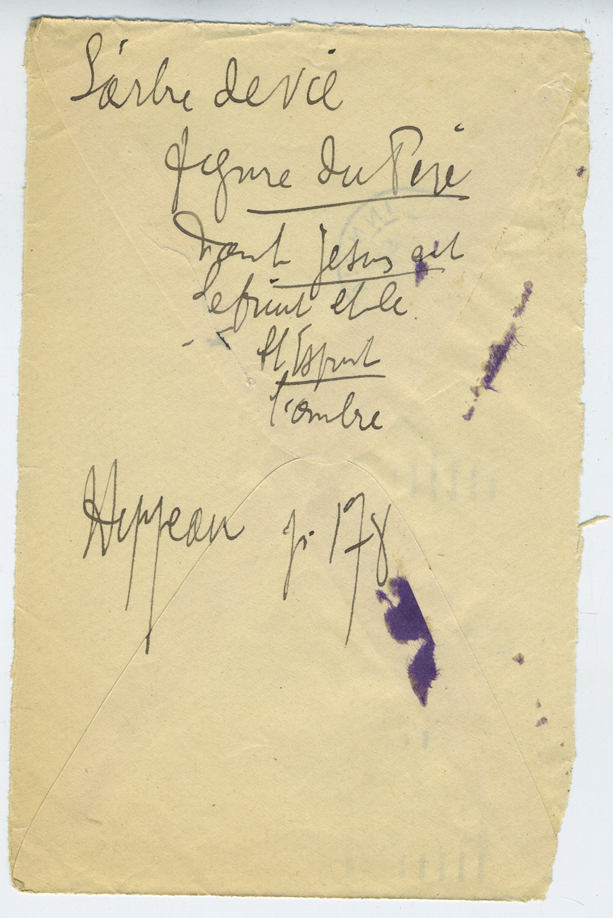 L'arbre de vie
figure du Père
dont Jésus est
le fruit et le
St Esprit
l'ombre
Hippeau p. 178